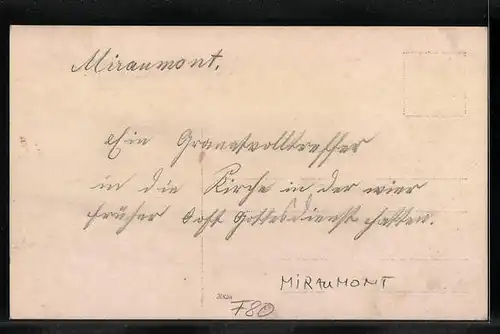 Miraumont.
Ein Granatvolltreffer
in die Kirche in der wier
früher oft Gottesdienst hatten.
MIRAUMONT
F80